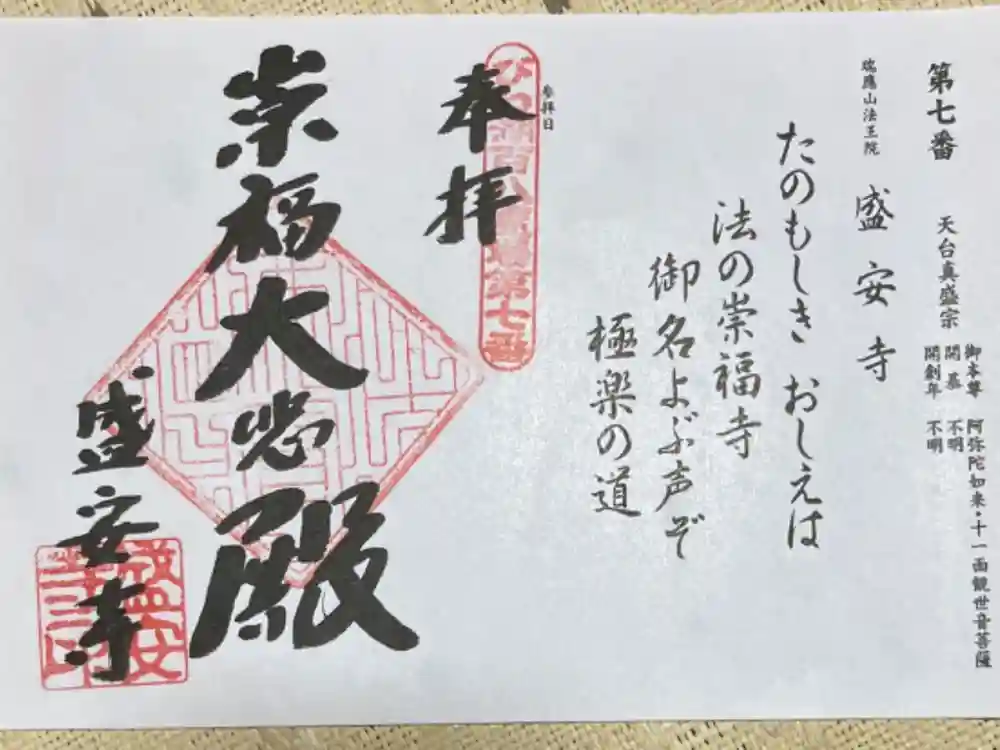 第七番 天台真盛宗
御本尊 阿弥陀如来・十一面観世音菩薩
開基 不明
開創年 不明
瑞應山法王院 盛安寺
たのもしき おしえは
法の崇福寺
御名よぶ声ぞ
極楽の道
参拝日
びわ湖百八霊場第七番
奉拝
崇福大悲殿
盛安寺
盛安
寺印